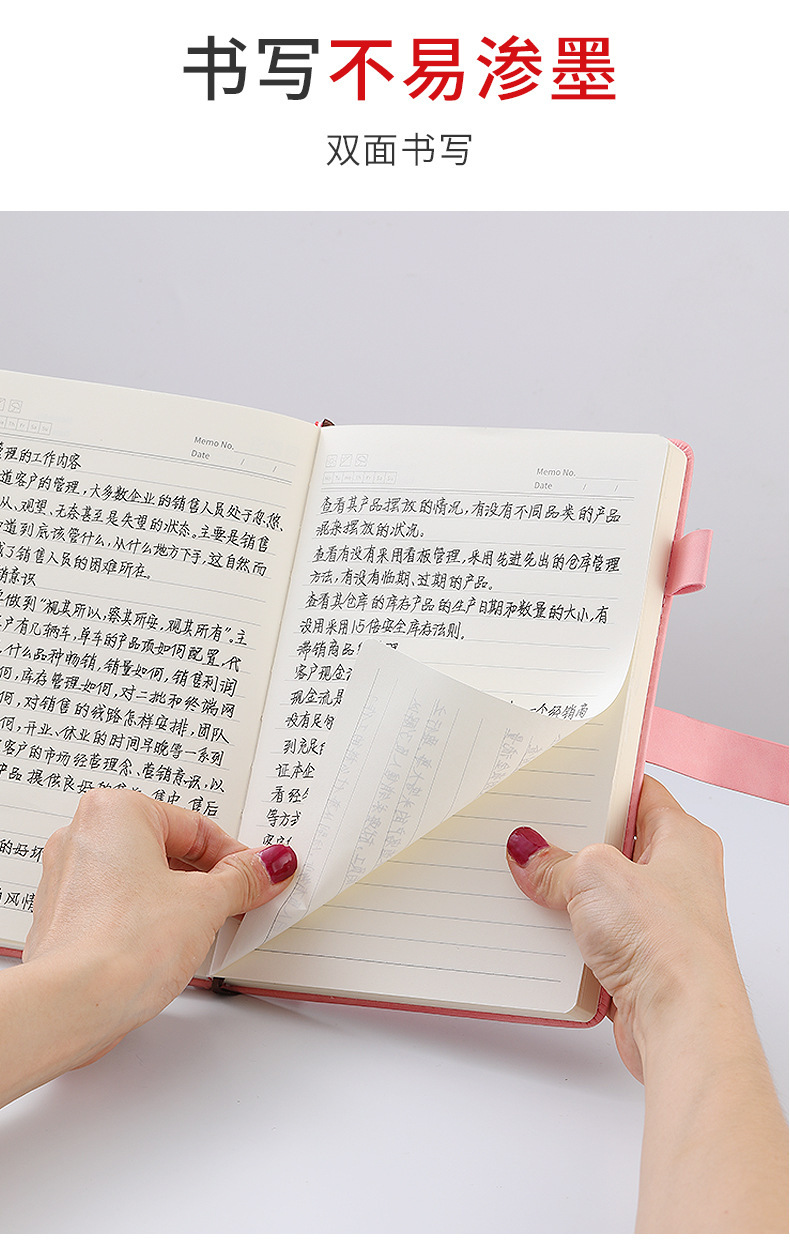 书写不易渗墨
双面书写
Memo No.
Date / /
管理的工作内容
道客户的管理,大多数企业的销售人员处于忽悠、
从、观望、无奈甚至是失望的状态。主要是销售
知道到底该管什么,从什么地方下手,这自然而
成了销售人员的困难所在。
销意识
要做到“视其所以,察其所安,观其所有”。主
客户有几辆车,单车的产品项如何配置,代
,什么品种畅销,销量如何,销售利润
何,库存管理如何,对二批和终端网
何,对销售的线路怎样安排,团队
何,开业、休业的时间早晚等一系列
客户的市场经营理念、营销意识,以
产品提供良好的售前、售中、售后
的好坏
风情
Memo No.
Date / /
查看其产品摆放的情况,有没有不同品类的产品
混来摆放的状况。
查看有没有采用看板管理,采用先进先出的仓库管理
方法,有没有临期、过期的产品。
查看其仓库的库存产品的生产日期和数量的大小,有
没用采用1.5倍安全库存法则。
滞销商品
客户现金
一个经销商
现金流是
没有足够
到充足
证本企
看经
等方